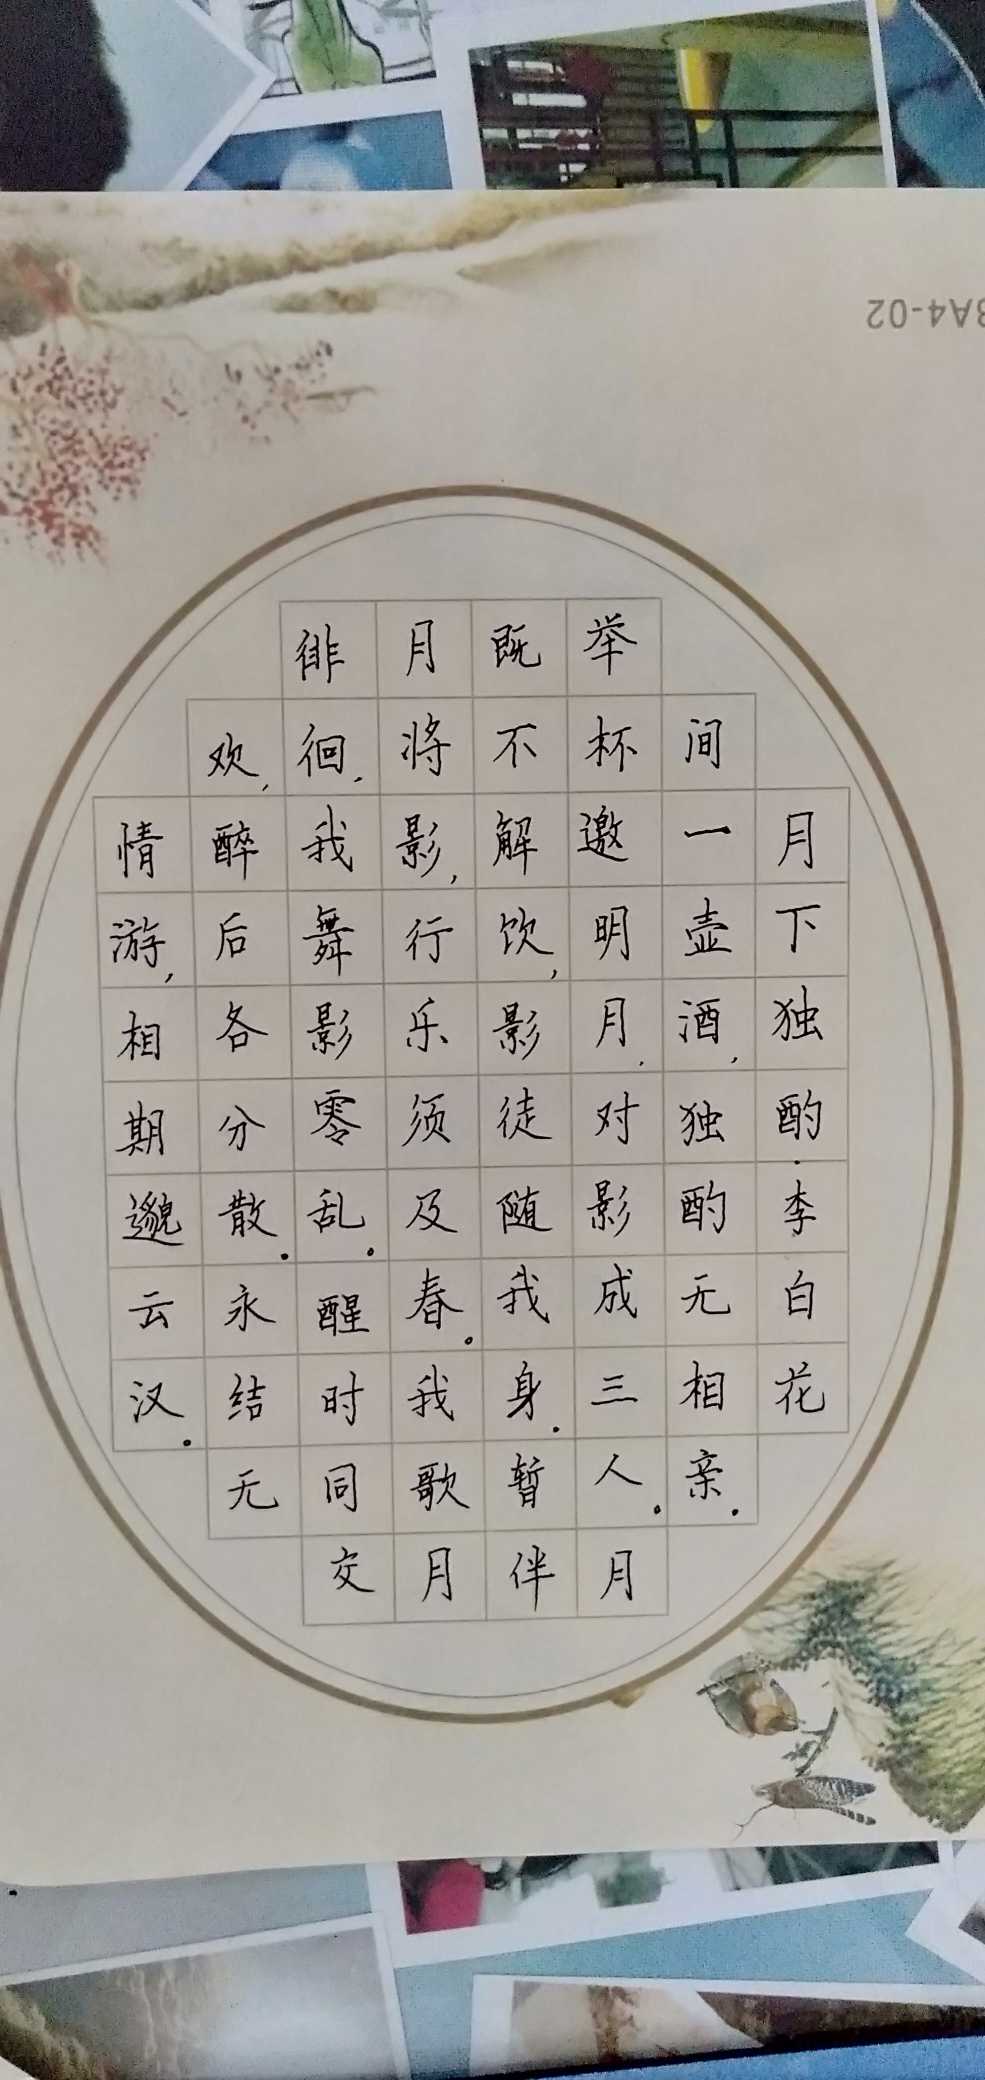 月下独酌·李白花
间一壶酒,独酌无相亲。
举杯邀明月,对影成三人。月
既不解饮,影徒随我身。暂伴
月将影,行乐须及春。我歌月
徘徊,我舞影零乱。醒时同交
欢,醉后各分散。永结无
情游,相期邈云汉。
A4-02